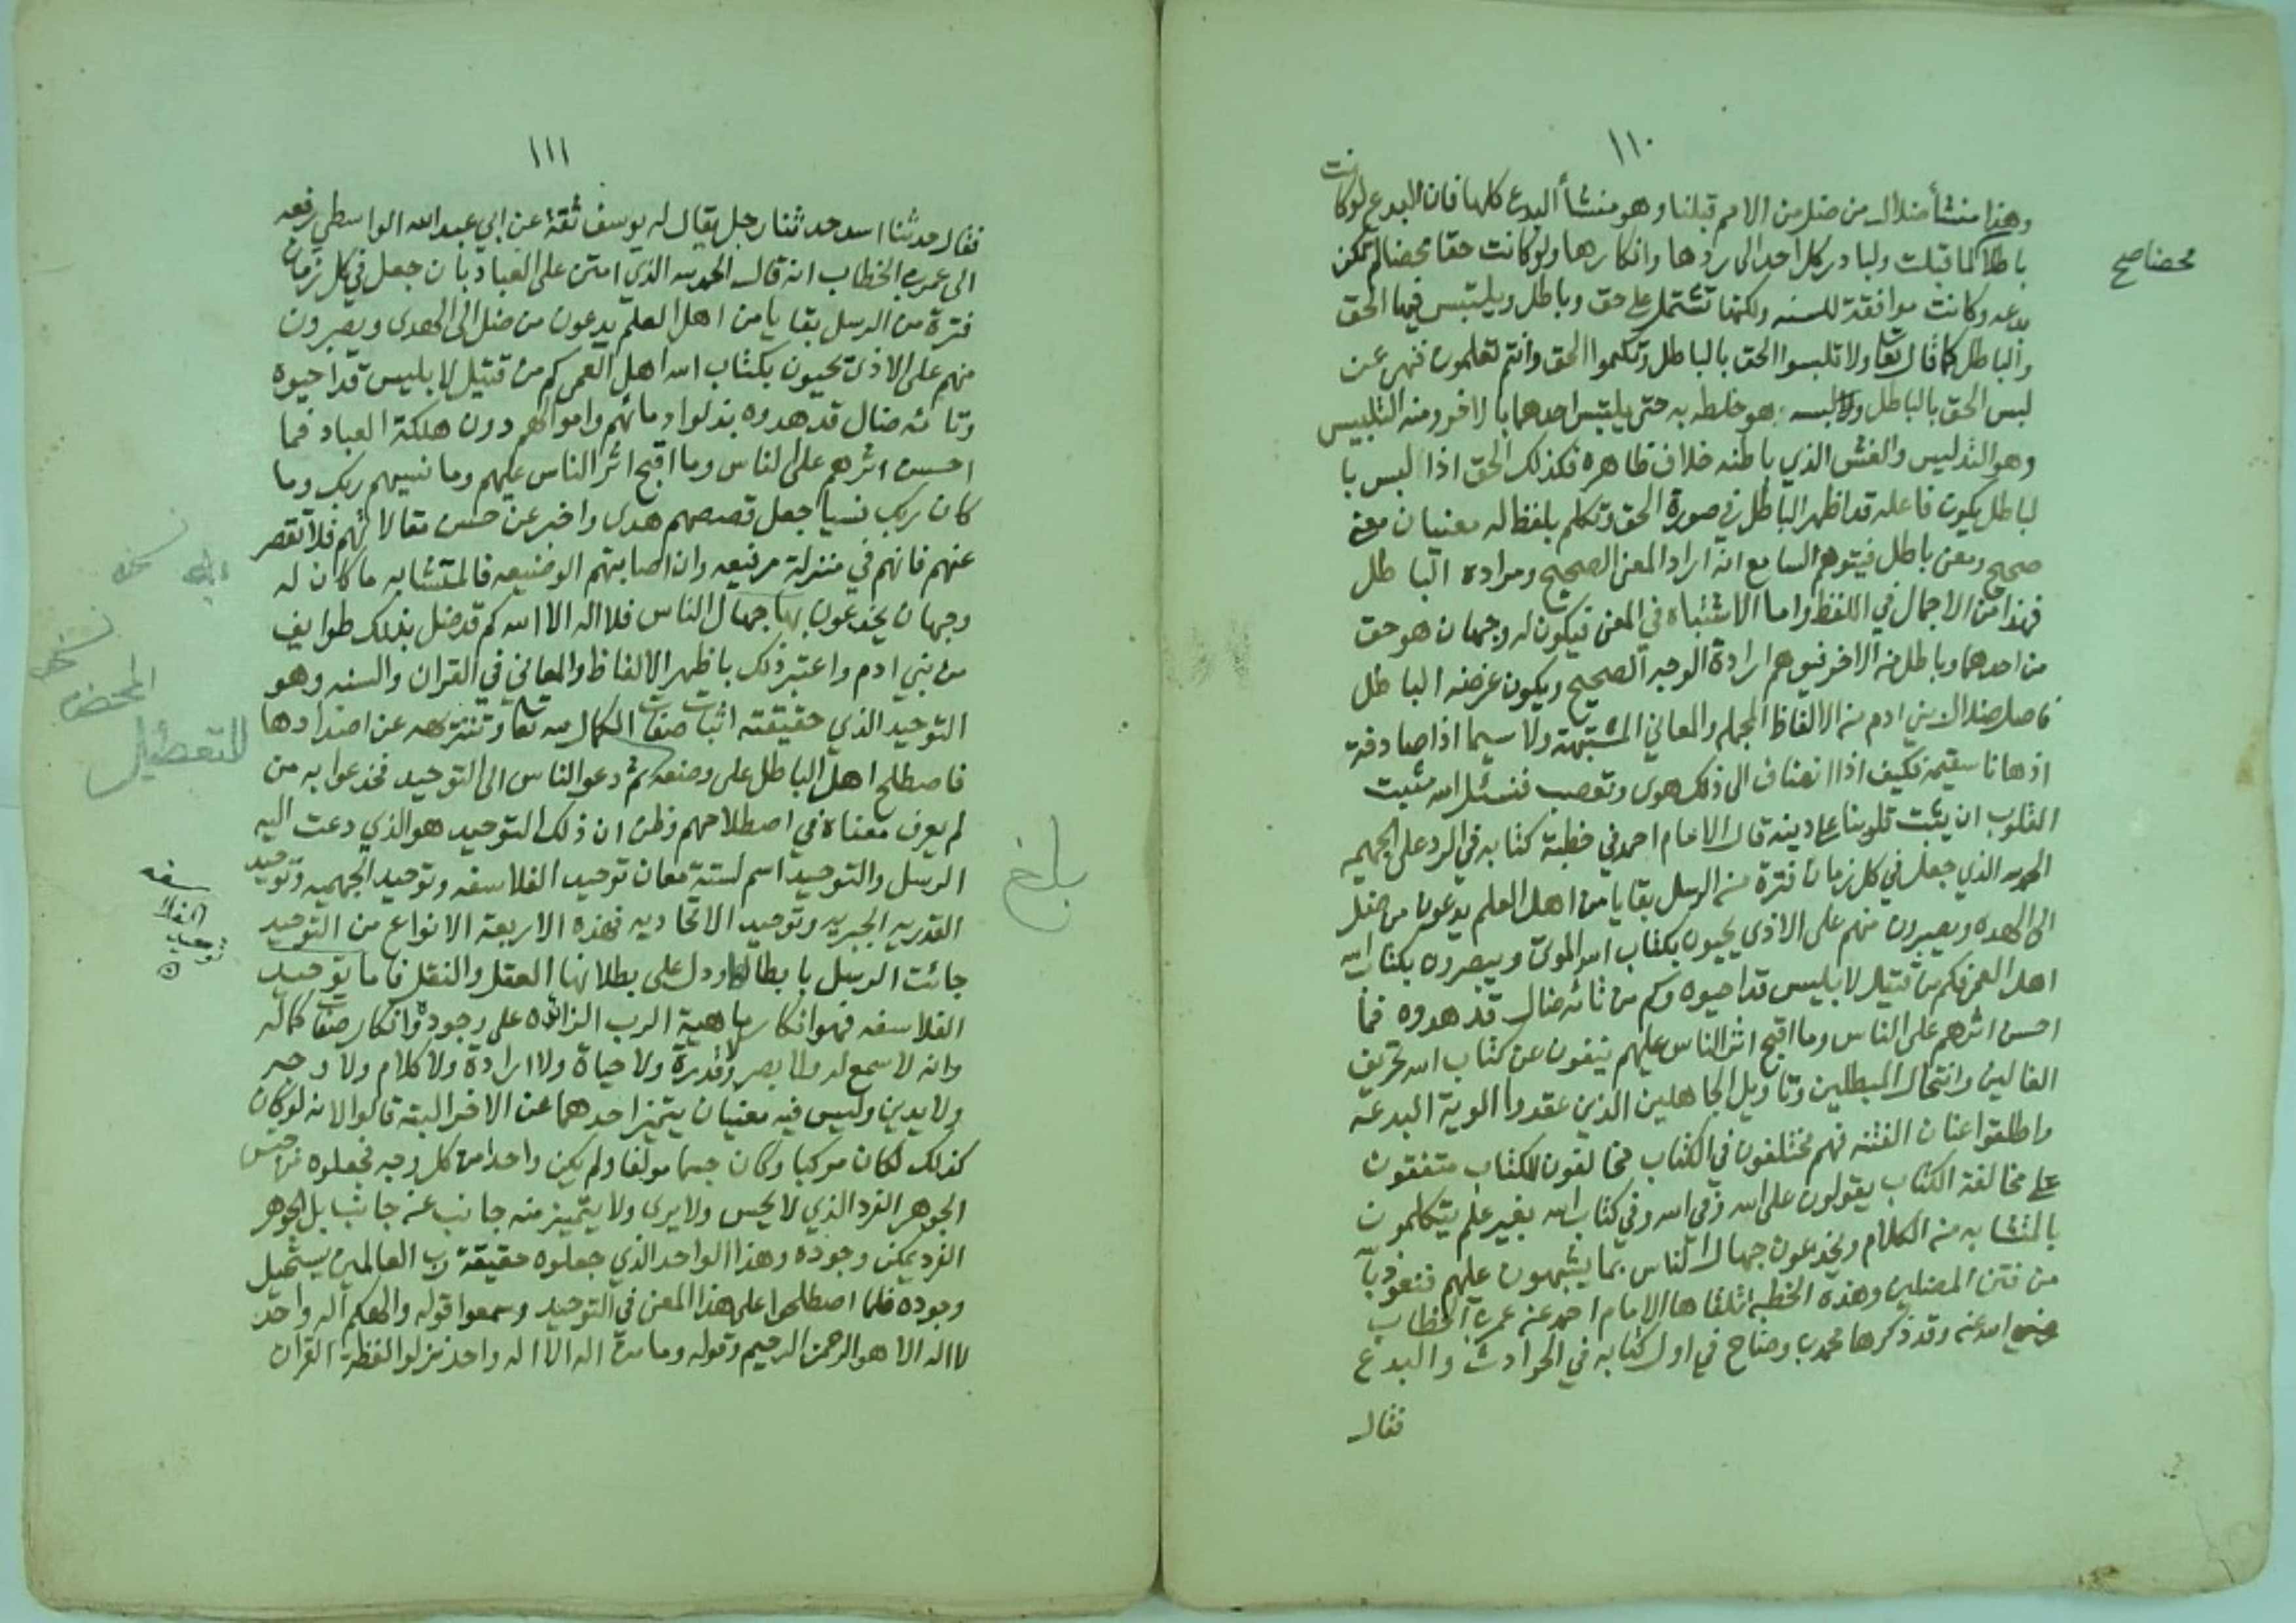 ١١٠
وهذا منشأ ضلال من ضل من الامم قبلنا وهو منشأ البدع كلها فان البدع لو كانت
باطلا لما قبلت ولبادر كل احد الى ردها وانكارها ولو كانت حقا محضا لم تكن
بدعه وكانت موافقة للسنه ولكنها تشتمل على حق وباطل ويلتبس فيها الحق
والباطل كما قال تعا ولا تلبسوا الحق بالباطل وتكتموا الحق وانتم تعلمون فنهى عن
لبس الحق بالباطل ولبسه هو خلطه به حتى يلتبس احدهما بالاخر ومنه التلبيس
وهو التدليس والغش الذي باطنه خلاف ظاهره فكذلك الحق اذا لبس با
لباطل يكون فاعله قد اظهر الباطل في صورة الحق وتكلم بلفظ له معنيان معنى
صحيح ومعنى باطل فيتوهم السامع انه اراد المعنى الصحيح ومراده الباطل
فهذا من الاجمال في اللفظ واما الاشتباه في المعنى فيكون له وجهان هو حق
من احدهما وباطل من الاخر فيوهم ارادة الوجه الصحيح ويكون غرضه الباطل
فاصل ضلال بني ادم من الالفاظ المجمله والمعاني المشتبهة ولا سيما اذا صادفة
اذهانا سقيمة فكيف اذا انضاف الى ذلك هوى وتعصب فنسئل الله مثبت
القلوب ان يثبت قلوبنا على دينه قال الامام احمد في خطبة كتابه في الرد على الجهميه
الحمد لله الذي جعل في كل زمان فترة من الرسل بقايا من اهل العلم يدعون من ضل
الى الهدى ويصبرون منهم على الاذى يحيون بكتاب الله الموتى ويبصرون بكتاب الله
اهل العمى فكم من قتيل لابليس قد احيوه وكم من تائه ضال قد هدوه فما
احسن اثرهم على الناس وما اقبح اثر الناس عليهم ينفون عن كتاب الله تحريف
الغالين وانتحال المبطلين وتاويل الجاهلين الذين عقدوا الوية البدعة
واطلقوا عنان الفتنه فهم مختلفون في الكتاب مخالفون للكتاب متفقون
على مخالفة الكتاب يقولون على الله وفي الله وفي كتاب الله بغير علم يتكلمون
بالمتشابه من الكلام ويخدعون جهال الناس بما يشبهون عليهم فنعوذ بالله
من فتن المضلين وهذه الخطبة تلقاها الامام احمد عن عمر بن الخطاب
رضي الله عنه وقد ذكرها محمد بن وضاح في اول كتابه في الحوادث والبدع
فقال
محضا صح
١١١
فقال حدثنا اسد حدثنا رجل يقال له يوسف ثقة عن ابي عبد الله الواسطي رفعه
الى عمر بن الخطاب انه قال الحمد لله الذي امتن على العباد بان جعل في كل زمان
فترة من الرسل بقايا من اهل العلم يدعون من ضل الى الهدى ويصبرون
منهم على الاذى يحيون بكتاب الله اهل العمى كم من قتيل لابليس قد احيوه
وتائه ضال قد هدوه بذلوا دمائهم واموالهم دون هلكة العباد فما
احسن اثرهم على الناس وما اقبح اثر الناس عليهم وما نسيهم ربك وما
كان ربك نسيا جعل قصصهم هدى واخبر عن حسن مقالاتهم فلا تقصر
عنهم فانهم في منزلة رفيعه وان اصابتهم الوضيعه فالمتشابه ما كان له
وجهان يخدعون بها جهال الناس فلا اله الا الله كم قد ضل بذلك طوايف
من بني ادم واعتبر ذلك باظهر الالفاظ والمعاني في القران والسنه وهو
التوحيد الذي حقيقته اثبات صفات الكمال لله تعا وتنزيهه عن اضدادها
فاصطلح اهل الباطل على وضعه ثم دعو الناس الى التوحيد فخدعوا به من
لم يعرف معناه في اصطلاحهم وظن ان ذلك التوحيد هو الذي دعت اليه
الرسل والتوحيد اسم لستة معان توحيد الفلاسفه وتوحيد الجهميه وتوحيد
القدريه الجبريه وتوحيد الاتحاديه فهذه الاربعة الانواع من التوحيد
جائت الرسل بابطالها ودل على بطلانها العقل والنقل فاما توحيد
الفلاسفه فهو انكار ماهية الرب الزائده على وجوده وانكار صفات كماله
وانه لا سمع له ولا بصر ولا قدرة ولا حياة ولا ارادة ولا كلام ولا وجه
ولا يدين وليس فيه معنيان يتميز احدهما عن الاخر البتة قالوا لانه لو كان
كذلك لكان مركبا وكان جسما مولفا ولم يكن واحدا من كل وجه فجعلوه من جنس
الجوهر الفرد الذي لا يحس ولا يرى ولا يتميز منه جانب عن جانب بل الجوهر
الفرد يمكن وجوده وهذا الواحد الذي جعلوه حقيقة رب العالمين يستحيل
وجوده فلما اصطلحوا على هذا المعنى في التوحيد وسمعوا قوله والهكم اله واحد
لا اله الا هو الرحمن الرحيم وقوله وما من اله الا اله واحد نزلوا لفظة القران
نسخه
نسخه
المحض
للتعطيل
توحيد
الفلا
سفه
بلغ